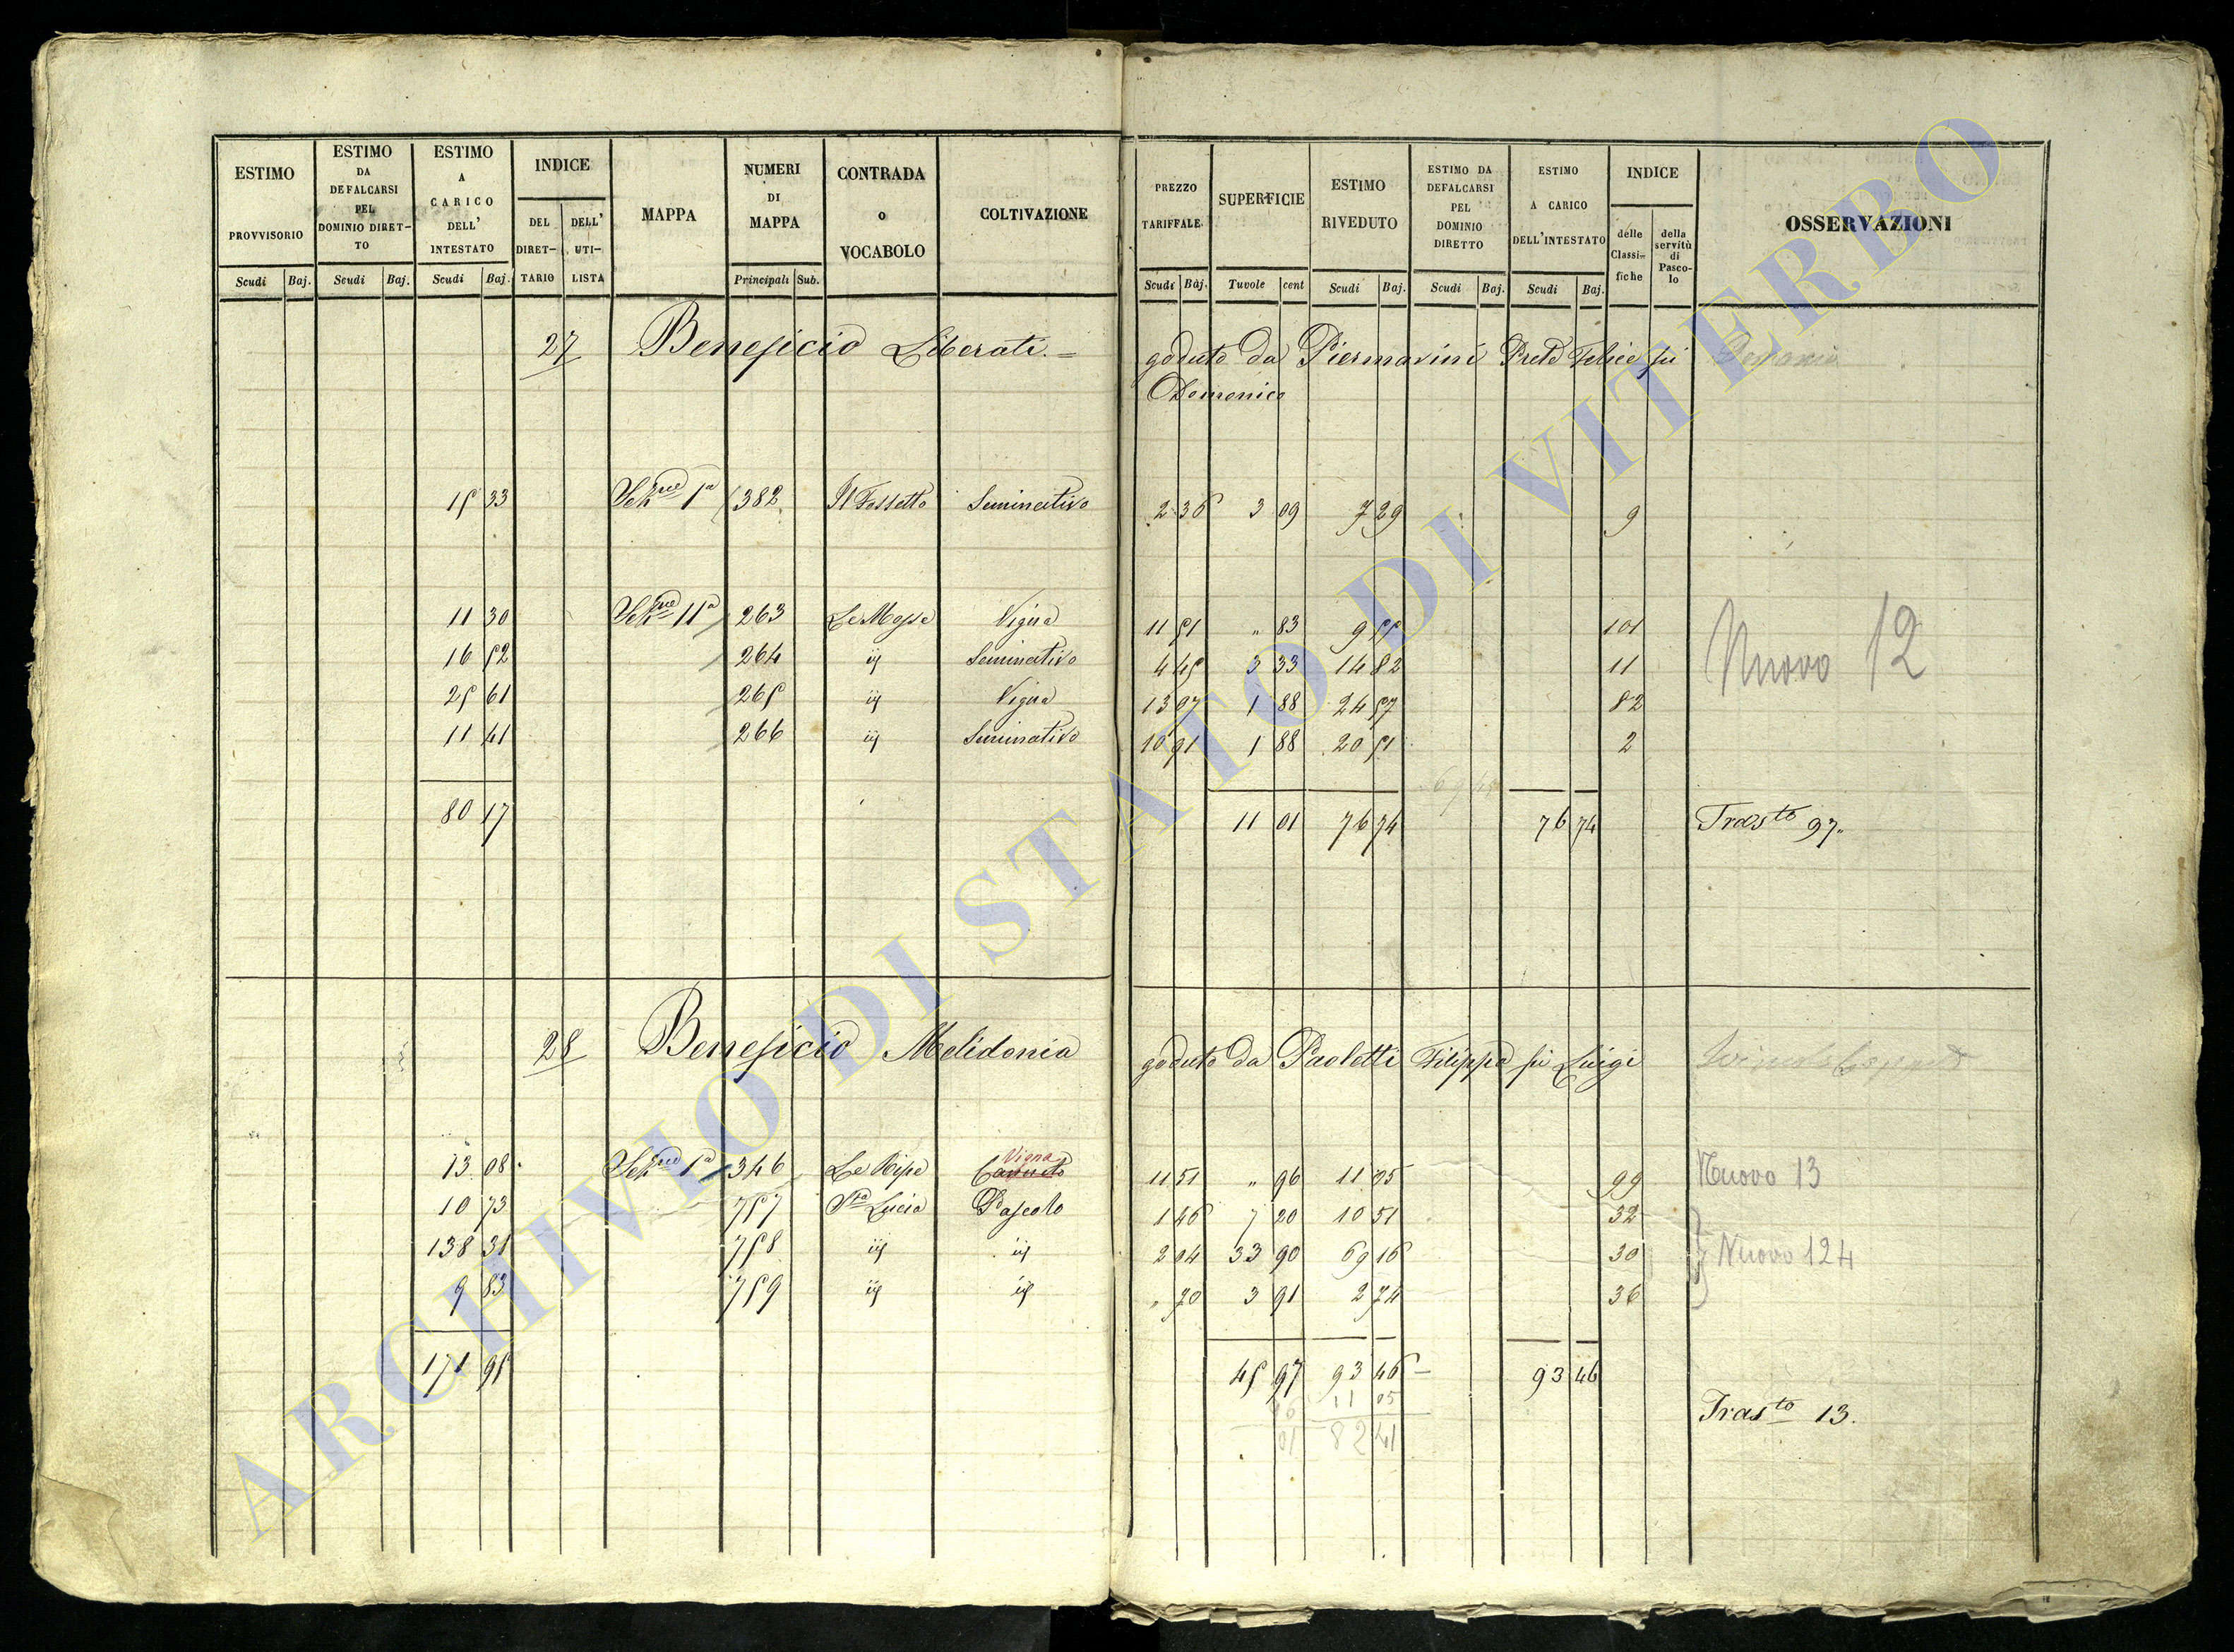 ESTIMO PROVVISORIO
ESTIMO DA DEFALCARSI PEL DOMINIO DIRETTO
ESTIMO A CARICO DELL' INTESTATO
INDICE
DEL DIRETTARIO
DELL' UTILISTA
MAPPA
NUMERI DI MAPPA
CONTRADA O VOCABOLO
COLTIVAZIONE
PREZZO TARIFFALE
SUPERFICIE
ESTIMO RIVEDUTO
ESTIMO DA DEFALCARSI PEL DOMINIO DIRETTO
ESTIMO A CARICO DELL'INTESTATO
INDICE
delle Classifiche
della servitù di Pascolo
OSSERVAZIONI
Scudi Baj. Scudi Baj. Scudi Baj. Principali Sub. Scudi Baj. Tavole cent Scudi Baj. Scudi Baj. Scudi Baj.
27 Beneficio Liberati. = goduto da Piermarini Prete Felice fu
Domenico
15 33 Sezne 1a 382 Il Fossetto Seminativo 2 36 3 09 7 29 9
11 30 Sezne 11a 263 Le Mosse Vigna 11 51 " 83 9 55 101
16 52 264 id Seminativo 4 45 3 33 14 82 11
25 61 265 id Vigna 13 07 1 88 24 57 82
11 41 266 id Seminativo 10 91 1 88 20 51 2
Nuovo 12
80 17 11 01 76 74 76 74 Trasto 97.
28 Beneficio Melidonia goduto da Paoletti Filippo fu Luigi
Vigna
13 08 Sezne 1a 346 Le Ripe Canneto 11 51 " 96 11 05 99 Nuovo 13
10 73 757 Sta Lucia Pascolo 1 46 7 20 10 51 32
138 31 758 id id 2 04 33 90 69 16 30 Nuovo 124
9 83 759 id id " 70 3 91 2 74 36
171 95 45 97 93 46 93 46
96 11 05
01 82 41
Trasto 13.
ARCHIVIO DI STATO DI VITERBO